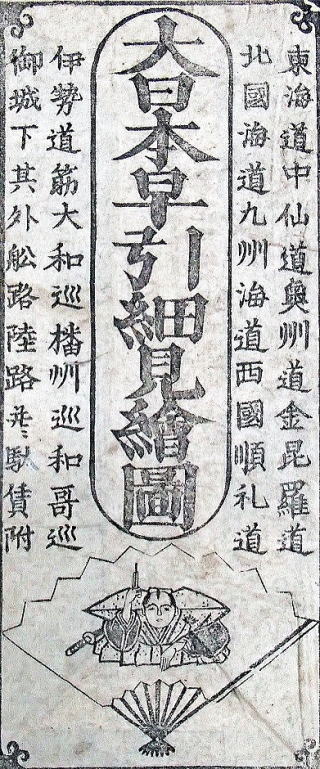 東海道中仙道奥州道金毘羅道
北國海道九州海道西國順礼道
大日本早引細見繪圖
伊勢道筋大和巡播州巡和哥巡
御城下其外舩路陸路并ニ馱賃附